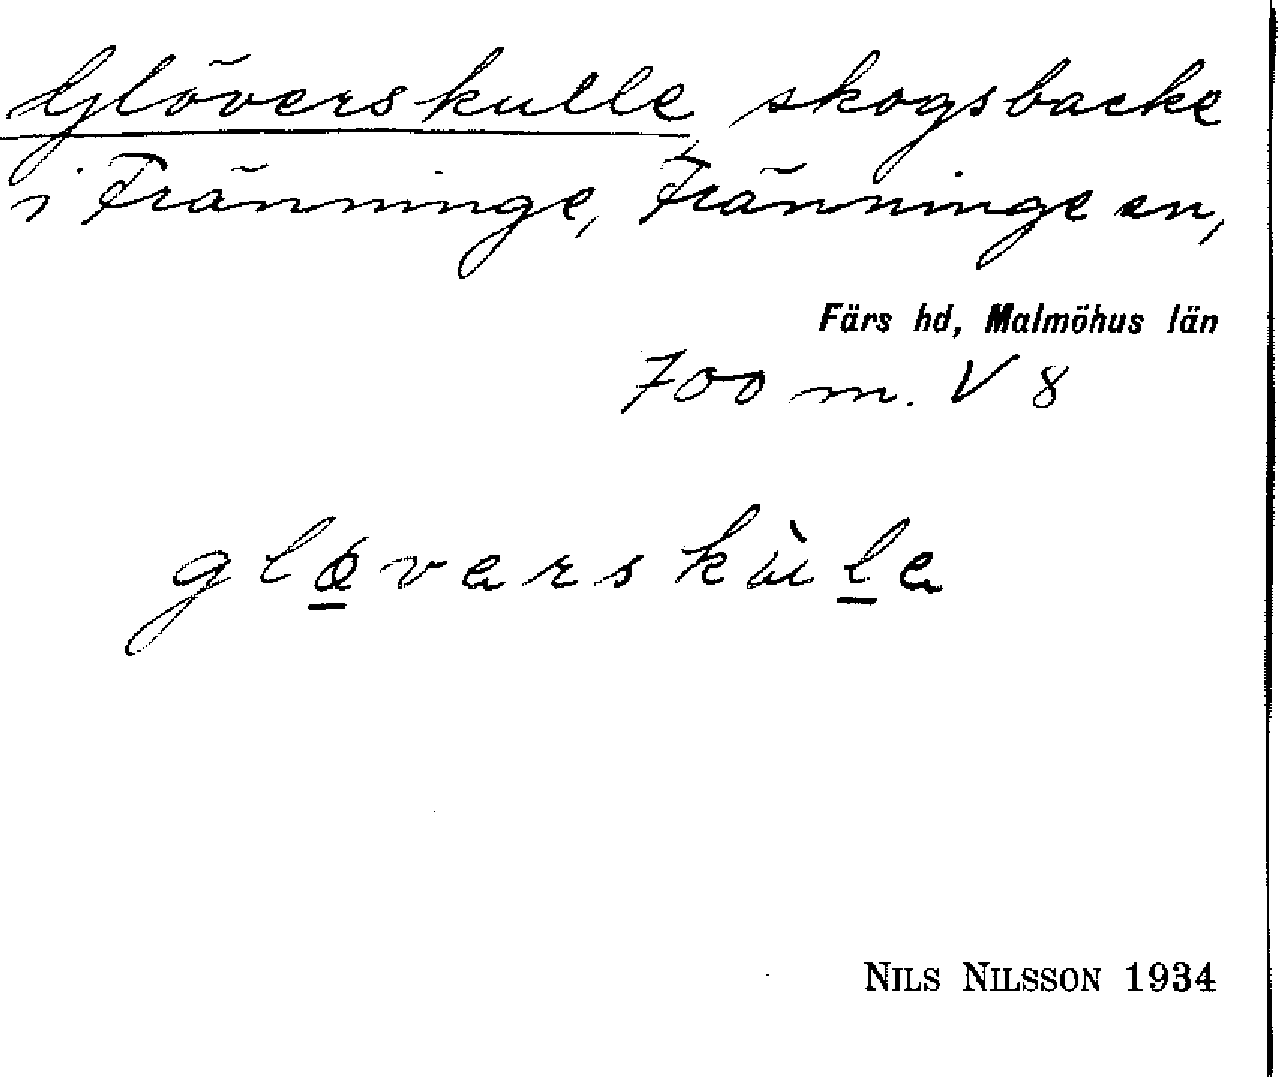 Glöverskulle, skogsbacke
i Fränninge, Fränninge sn,
Färs hd, Malmöhus län
700 m. V 8
glø̲varskùl̲a
NILS NILSSON 1934